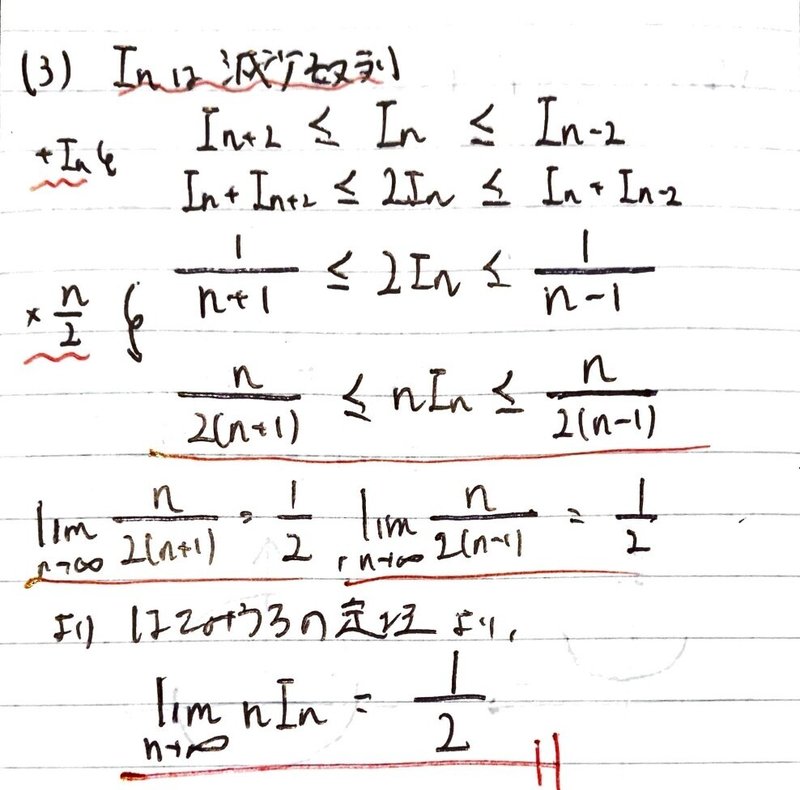 (3) Inは減少数列
In+2 ≤ In ≤ In-2
+In
In + In+2 ≤ 2In ≤ In + In-2
1/(n+1) ≤ 2In ≤ 1/(n-1)
× n/2
n/2(n+1) ≤ nIn ≤ n/2(n-1)
lim n→∞ n/2(n+1) = 1/2 lim n→∞ n/2(n-1) = 1/2
より はさみうちの定理より,
lim n→∞ nIn = 1/2